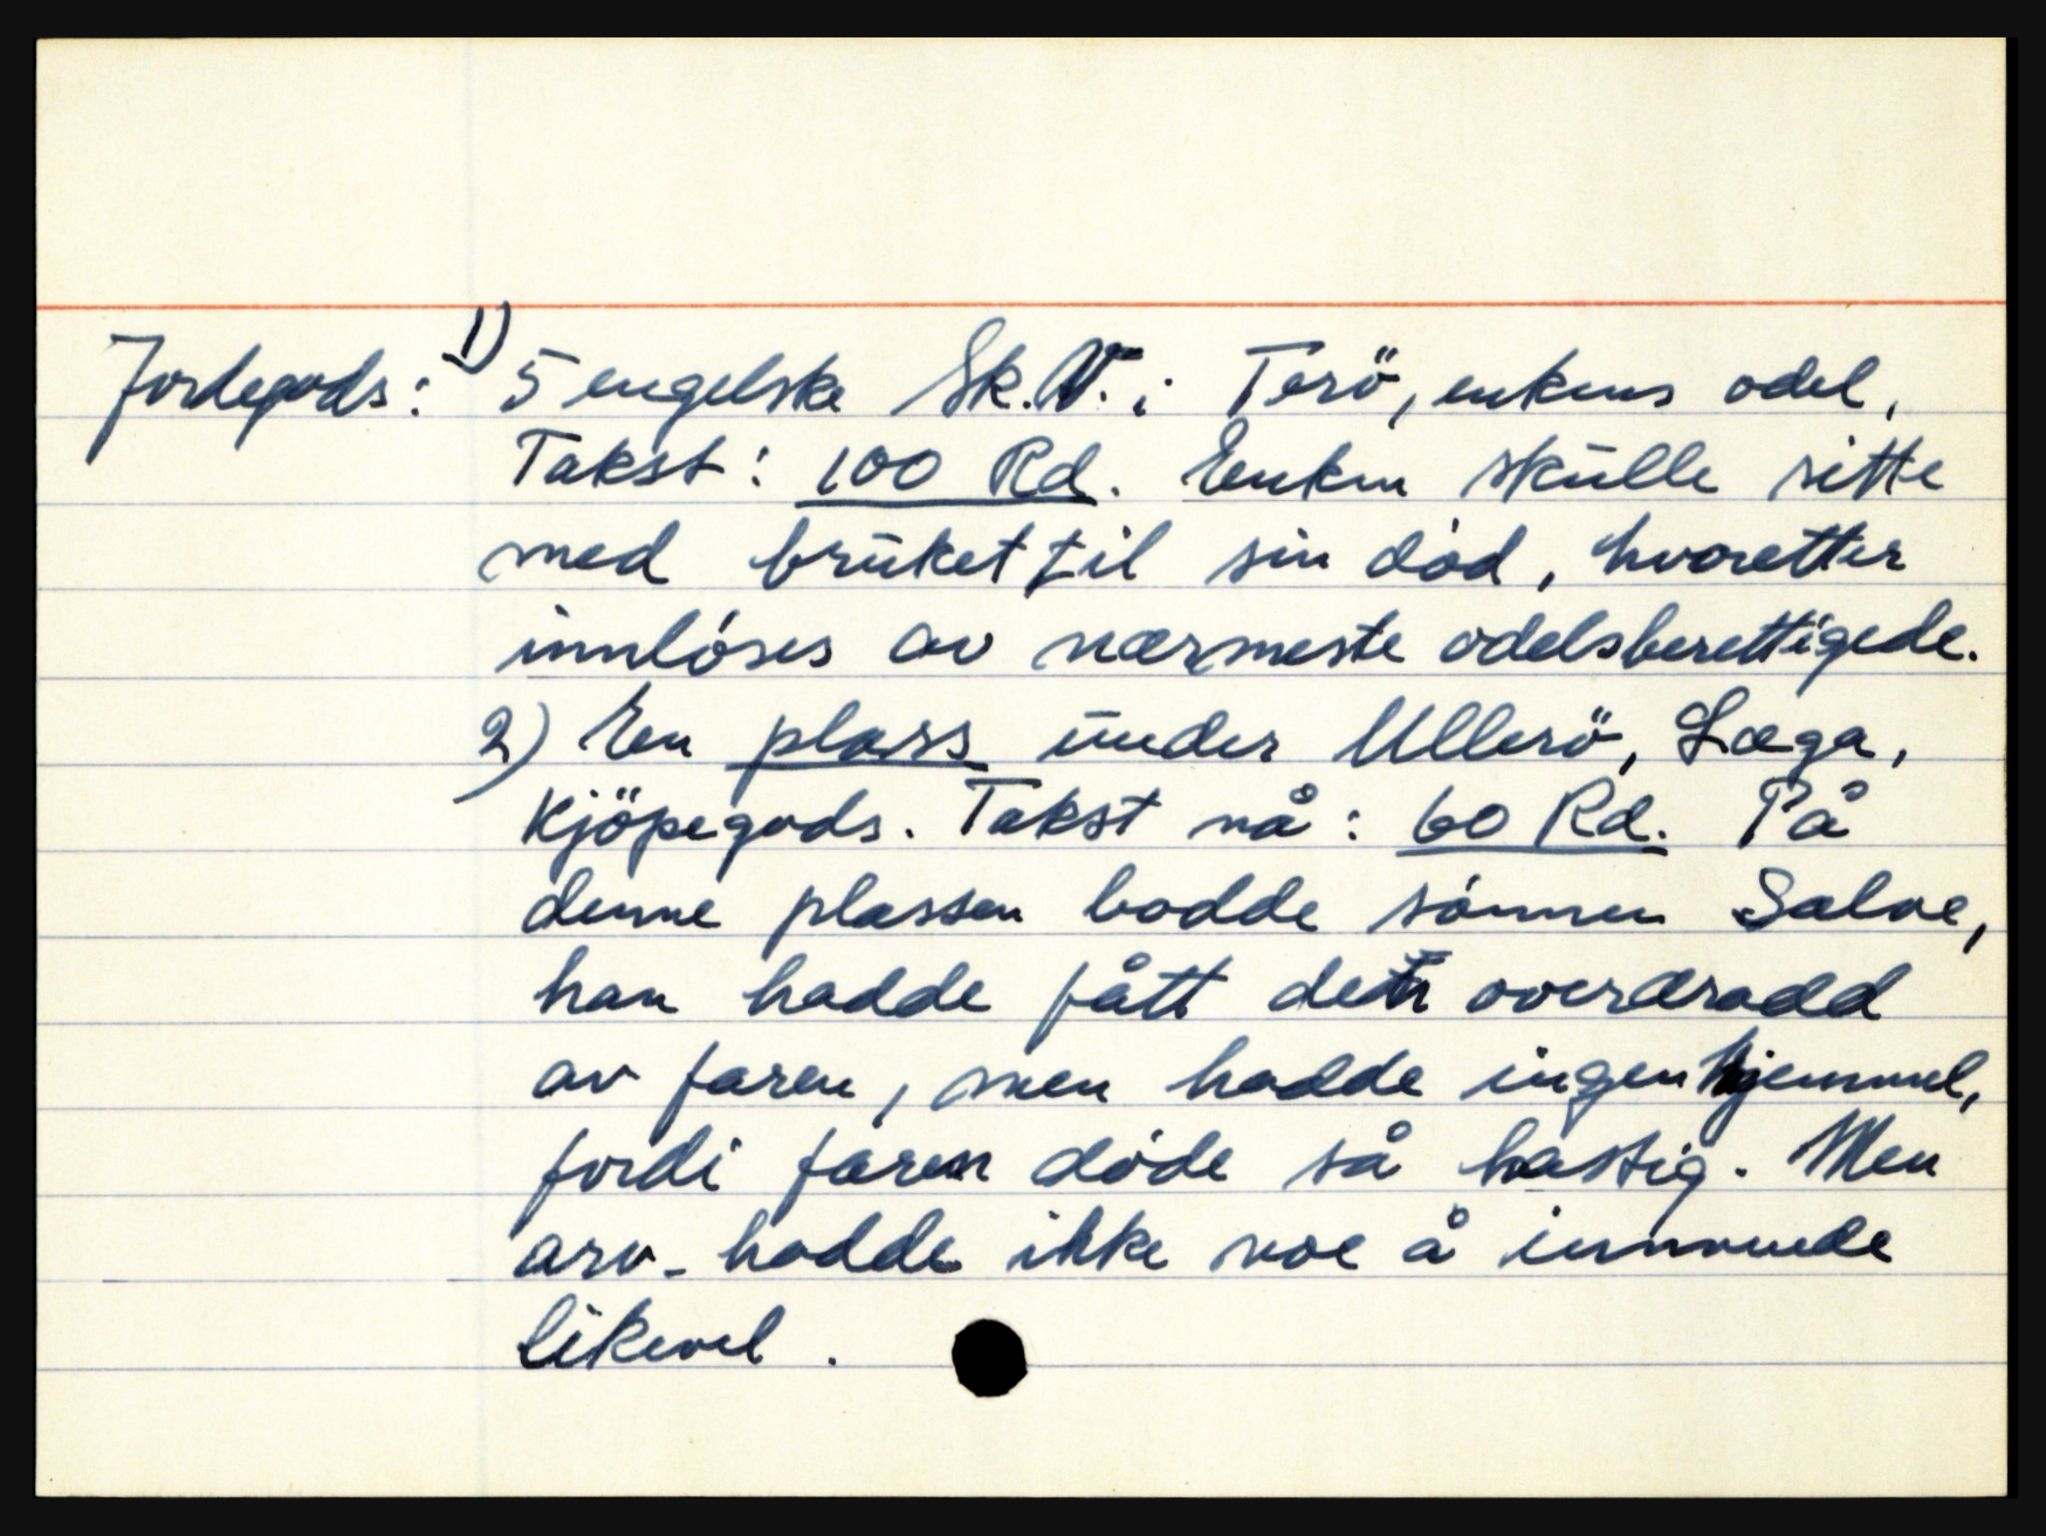 Jordegods: 1) 5 engelske Sk.V. i Terö, enkens odel,
Takst: 100 Rd. Enken skulle sitte
med bruket til sin död, hvoretter
innlöses av nærmeste odelsberettigede.
2) En plass under Ulleró, Læga,
Kjöpegods. Takst nå: 60 Rd. På
denne plassen bodde sönnen Salve,
han hadde fått den overdradd
av faren, men hadde ingen hjemmel,
fordi faren döde så hastig. Men
arv. hadde ikke noe å innvende
likevel.